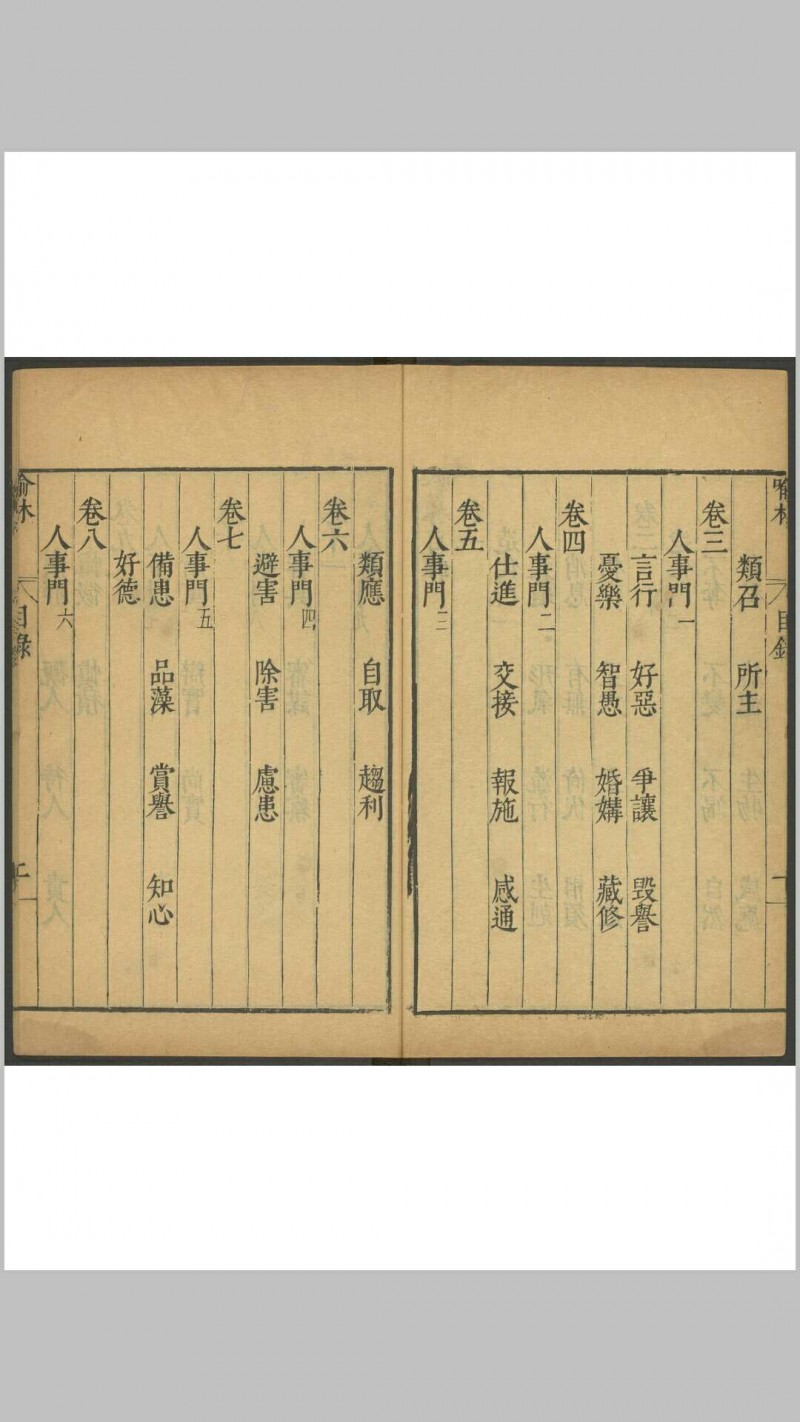 類召 所主
卷三
人事門一
言行 好惡 爭讓 毀譽
憂樂 智愚 婚媾 藏修
卷四
人事門二
仕進 交接 報施 感通
卷五
人事門三
類應 自取 趨利
卷六
人事門四
避害 除害 慮患
卷七
人事門五
備患 品藻 賞譽 知心
好德
卷八
人事門六
喻林 目錄